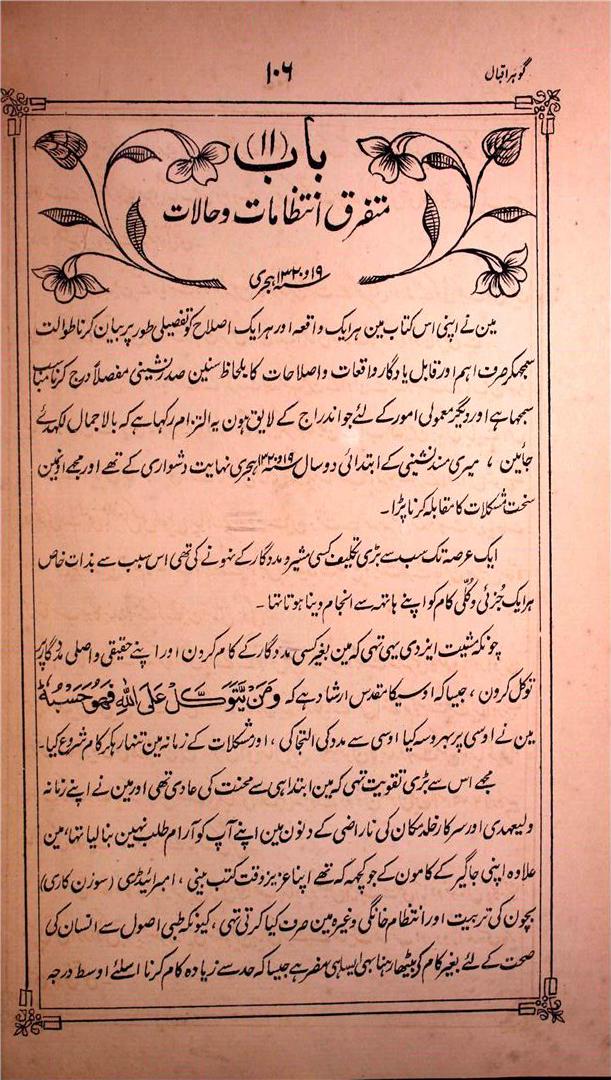 گوہر اقبال
۱۰۶
باب (۱۱)
متفرق انتظامات و حالات
سنہ ۱۹ و ۱۳۲۰ ہجری
مین نے اپنی اس کتاب مین ہر ایک واقعہ اور ہر ایک اصلاح کو تفصیلی طور پر بیان کرنا طوالت
سمجھکر صرف اہم اور قابل یادگار واقعات و اصلاحات کا بلحاظ سنین صدر نشینی مفصلاً درج کرنا مناسب
سمجھا ہے اور دیگر معمولی امور کے لئے جو اندراج کے لایق ہون یہ التزام رکہا ہے کہ بالاجمال لکہدئے
جائین ، میری مسند نشینی کے ابتدائی دو سال سنہ ۱۹ و ۱۳۲۰ ہجری نہایت دشواری کے تھے اور مجھے انہین
سخت مشکلات کا مقابلہ کرنا پڑا۔
ایک عرصہ تک سب سے بڑی تکلیف کسی مشیر و مددگار کے نہونے کی تھی اس سبب سے بذات خاص
ہر ایک جُزئی و کُلّی کام کو اپنے ہاتہہ سے انجام دینا ہوتا تہا ۔
چونکہ مشیت ایزدی یہی تہی کہ مین بغیر کسی مددگار کے کام کرون اور اپنے حقیقی و اصلی مددگار پر
توکل کرون ، جیسا کہ اوسیکا مقدس ارشاد ہے کہ وَمَنْ يَّتَوَكَّلْ عَلَى اللهِ فَهُوَ حَسْبُهٗ
مین نے اوسی پر بہروسہ کیا اوسی سے مدد کی التجا کی ، اور مشکلات کے زمانہ مین تنہا رہکر کام شروع کیا۔
مجھے اس سے بڑی تقویت تہی کہ مین ابتدا ہی سے محنت کی عادی تھی اور مین نے اپنے زمانہ
ولیعہدی اور سرکار خلد مکان کی ناراضی کے دنون مین اپنے آپ کو آرام طلب نہین بنا لیا تہا، مین
علاوہ اپنی جاگیر کے کامون کے جو کچہہ کہ تھے اپنا عزیز وقت کتب بینی ، امبرائیڈری (سوزن کاری)
بچون کی تربیت اور انتظام خانگی وغیرہ مین صرف کیا کرتی تہی ، کیونکہ طبی اصول سے انسان کی
صحت کے لئے بغیر کام کو بیٹھا رہنا بہی ایسا ہی مضر ہے جیسا کہ حد سے زیادہ کام کرنا اسلئے اوسط درجہ